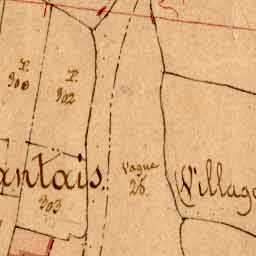 P. P.
900 902
antais. Village
Vague
26.
903